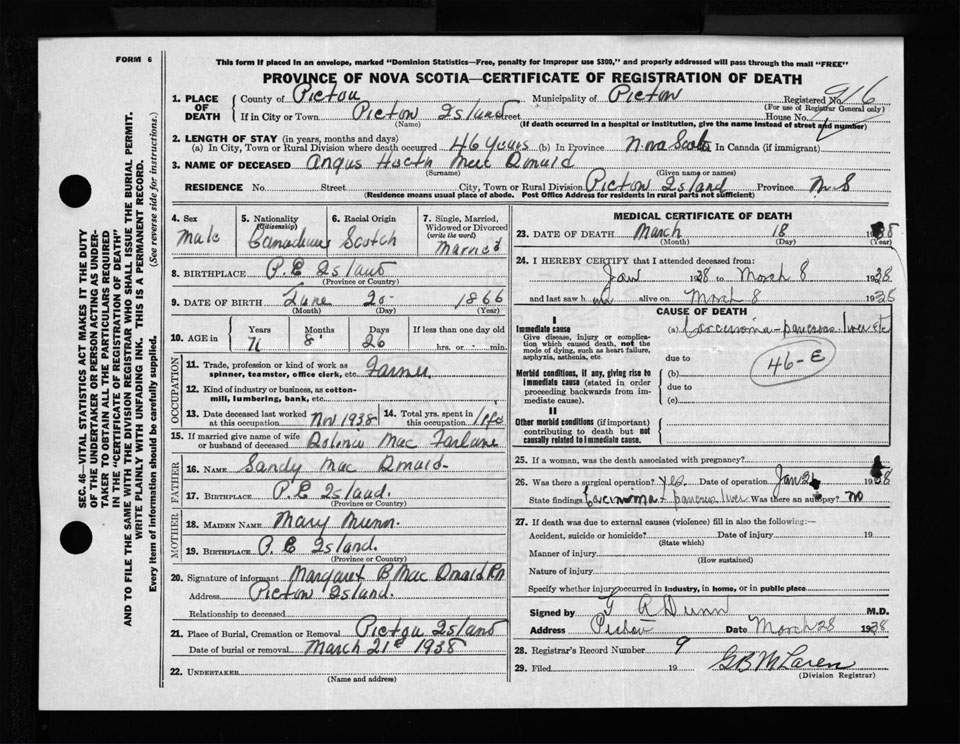 FORM 6
This form if placed in an envelope, marked "Dominion Statistics—Free, penalty for improper use $300," and properly addressed will pass through the mail "FREE"
PROVINCE OF NOVA SCOTIA—CERTIFICATE OF REGISTRATION OF DEATH
1. PLACE OF DEATH { County of Pictou Municipality of Pictou Registered No. 916
(For use of Registrar General only)
If in City or Town Pictou Island Street House No.
(Name) (If death occurred in a hospital or institution, give the name instead of street and number)
2. LENGTH OF STAY (in years, months and days)
(a) In City, Town or Rural Division where death occurred 46 years (b) In Province Nova Scotia In Canada (if immigrant)
3. NAME OF DECEASED Angus
(Surname) (Given name or names)
RESIDENCE No. Street City, Town or Rural Division Pictou Island Province N S
(Residence means usual place of abode. Post Office Address for residents in rural parts not sufficient)
4. Sex Male
5. Nationality (Citizenship) Canadian
6. Racial Origin Scotch
7. Single, Married, Widowed or Divorced (write the word) Married
8. BIRTHPLACE P.E Island
(Province or Country)
9. DATE OF BIRTH June 20 1866
(Month) (Day) (Year)
10. AGE in { Years 71 Months 8 Days 26 If less than one day old hrs. or min.
OCCUPATION
11. Trade, profession or kind of work as spinner, teamster, office clerk, etc. Farmer
12. Kind of industry or business, as cotton-mill, lumbering, bank, etc.
13. Date deceased last worked at this occupation Nov 1938
14. Total yrs. spent in this occupation life
15. If married give name of wife or husband of deceased Mac Farlane
FATHER
16. NAME Sandy Mac Donald
17. BIRTHPLACE P.E Island.
(Province or Country)
MOTHER
18. MAIDEN NAME Mary Munn.
19. BIRTHPLACE P. E Island.
(Province or Country)
20. Signature of informant Margaret B Mac Donald
Address Pictou Island.
Relationship to deceased
21. Place of Burial, Cremation or Removal Pictou Island
Date of burial or removal March 21st 1938
22. UNDERTAKER
(Name and address)
MEDICAL CERTIFICATE OF DEATH
23. DATE OF DEATH March 18 1938
(Month) (Day) (Year)
24. I HEREBY CERTIFY that I attended deceased from:
Jan 1938 to March 8 1938
and last saw h im alive on March 8 1938
CAUSE OF DEATH
I
Immediate cause (a) Carcinoma - pancreas liver etc
Give disease, injury or complication which caused death, not the mode of dying, such as heart failure, asphyxia, asthenia, etc.
due to
46-E
Morbid conditions, if any, giving rise to immediate cause (stated in order proceeding backwards from immediate cause).
(b)
due to
(c)
II
Other morbid conditions (if important) contributing to death but not causally related to immediate cause.
25. If a woman, was the death associated with pregnancy?
26. Was there a surgical operation? yes Date of operation Jan 1938
State findings Carcinoma - pancreas liver Was there an autopsy? no
27. If death was due to external causes (violence) fill in also the following:—
Accident, suicide or homicide? Date of injury 19
(State which)
Manner of injury
(How sustained)
Nature of injury
Specify whether injury occurred in industry, in home, or in public place
Signed by A Dunn M.D.
Address Pictou Date March 28 1938
28. Registrar's Record Number 9
29. Filed 19 G B McLaren
(Division Registrar)
SEC. 46—VITAL STATISTICS ACT MAKES IT THE DUTY
OF THE UNDERTAKER OR PERSON ACTING AS UNDER-
TAKER TO OBTAIN ALL THE PARTICULARS REQUIRED
IN THE "CERTIFICATE OF REGISTRATION OF DEATH"
AND TO FILE THE SAME WITH THE DIVISION REGISTRAR WHO SHALL ISSUE THE BURIAL PERMIT.
WRITE PLAINLY WITH UNFADING INK. THIS IS A PERMANENT RECORD.
Every item of information should be carefully supplied. (See reverse side for instructions.)